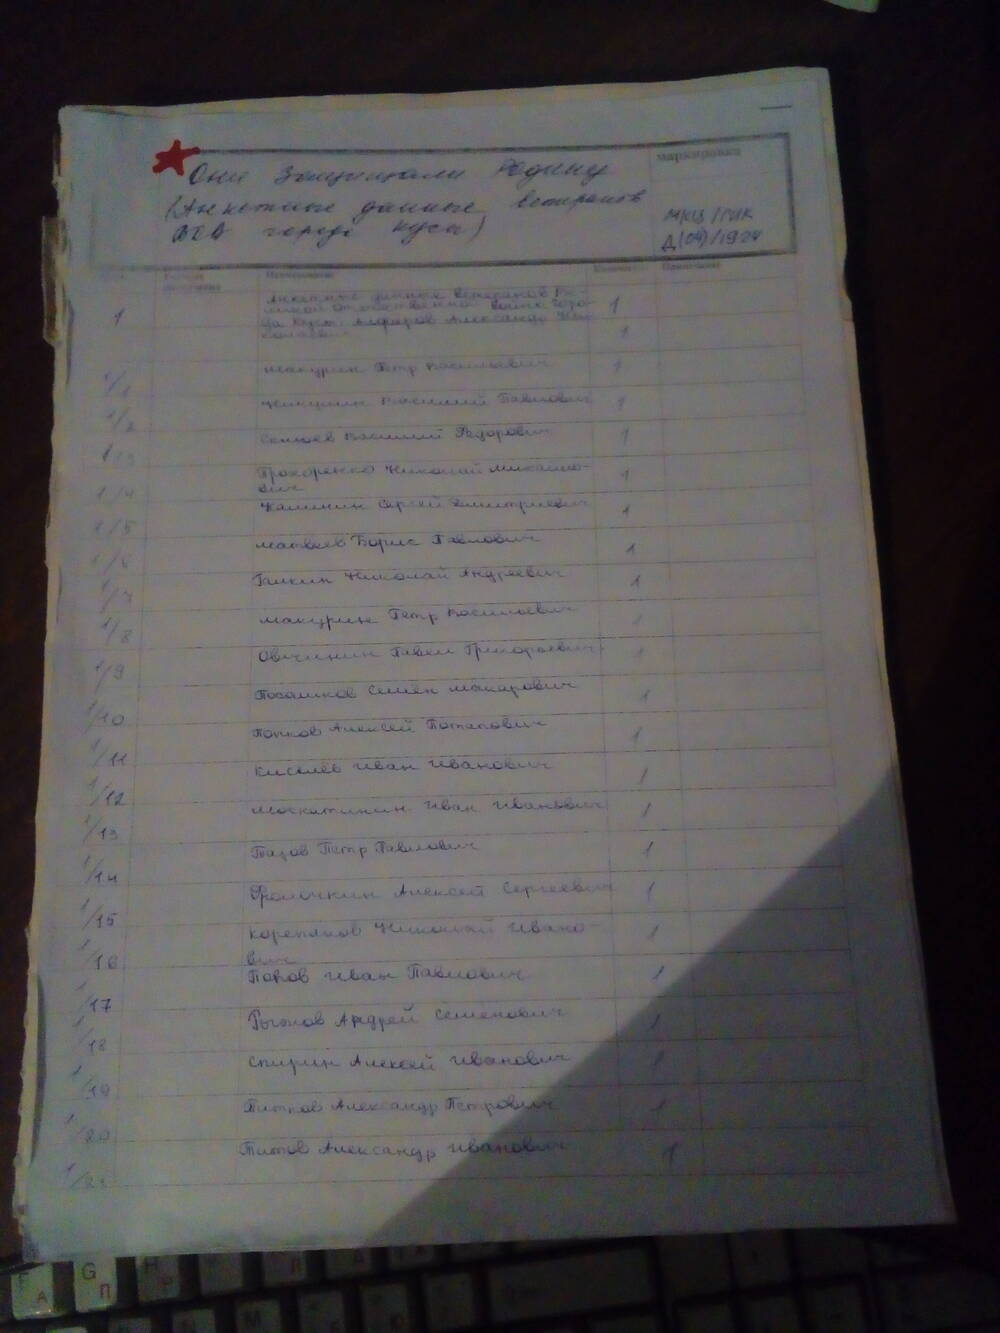 Они защищали Родину
маркировка
(Анкетные данные ветеранов
ВОВ города Кусы)
МКЦ/ГИК
Д(04)/1924
Наименование
1
Анкетные данные ветеранов Ве-
ликой Отечественной войны горо-
да Кусы: Александр Ни-
1
колаевич
1
1/1
Макурин Петр Васильевич
1
1/2
Василий Павлович
1
1/3
Василий Федорович
1
1/4
Прохоренко Николай Михайло-
вич
1
1/5
Калинин Сергей Дмитриевич
1
1/6
Матвеев Борис Павлович
1
1/7
Галкин Николай Андреевич
1
1/8
Макурин Петр Васильевич
1
1/9
Овчинин Павел Григорьевич
1
1/10
Посашков Семен Макарович
1
1/11
Попков Алексей Потапович
1
1/12
Киселев Иван Иванович
1
1/13
Иван Иванович
1
1/14
Петр Павлович
1
1/15
Фролочкин Алексей Сергеевич
1
1/16
Корепанов Николай Ивано-
вич
1
1/17
Попов Иван Павлович
1
1/18
Рыжов Андрей Семенович
1
1/19
Спирин Алексей Иванович
1
1/20
Титков Александр Петрович
1
1/21
Титов Александр Иванович
1
F А G П H Р